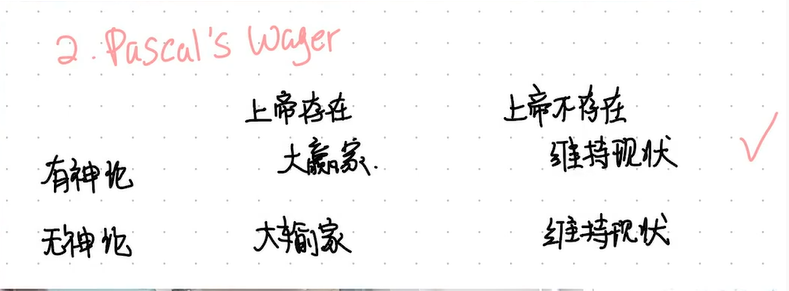 2. Pascal's Wager
上帝存在 上帝不存在
有神论 大赢家. 维持现状
无神论 大输家 维持现状